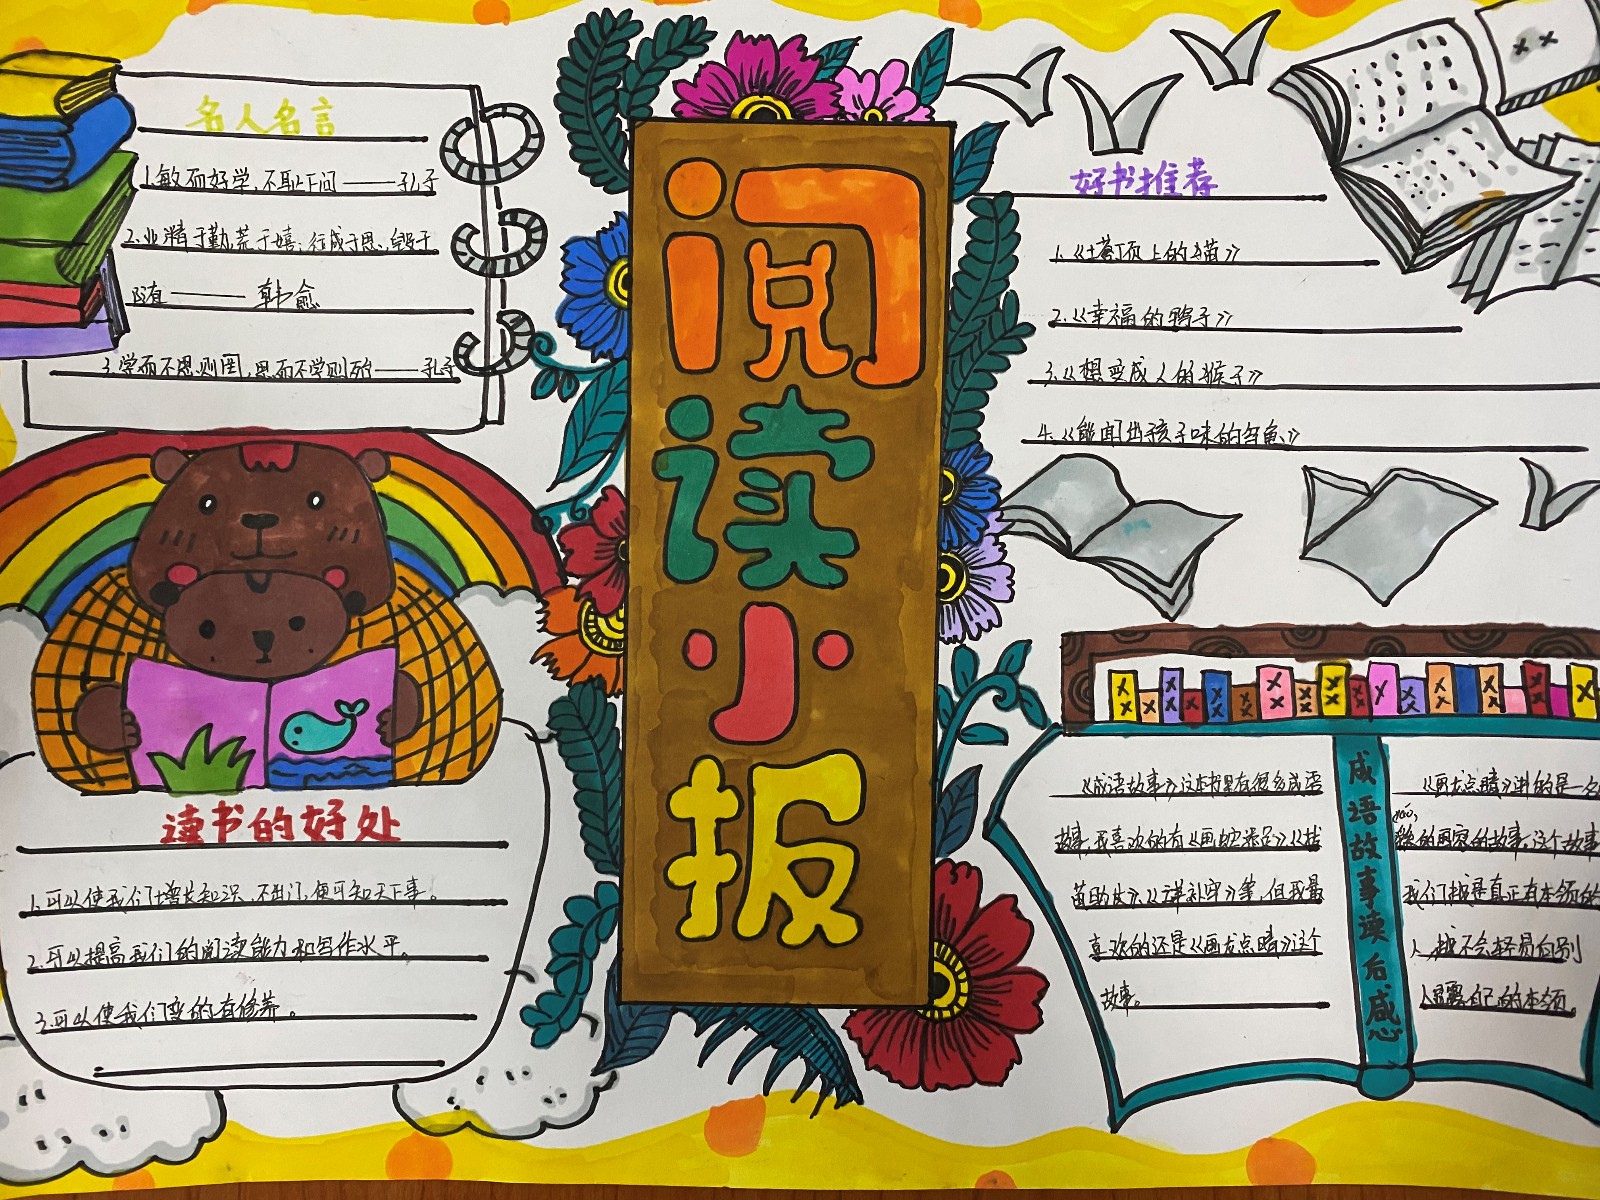 阅读小报
名人名言
1.敏而好学,不耻下问——孔子
2.业精于勤,荒于嬉;行成于思,毁于
随——韩愈
3.学而不思则罔,思而不学则殆——孔子
读书的好处
1.可以使我们增长知识,不出门,便可知天下事。
2.可以提高我们的阅读能力和写作水平。
3.可以使我们变的有修养。
好书推荐
1.《塔顶上的猫》
2.《幸福的鸭子》
3.《想变成人的猴子》
4.《能闻出孩子味的乌鱼》
成语故事读后感
《成语故事》这本书里有很多成语
故事,我喜欢的有《画蛇添足》《拔
苗助长》、《讲补牢》等,但我最
喜欢的还是《画龙点睛》这个
故事。
《画龙点睛》讲的是一名
的画家的故事,这个故事
我们越是真正有本领的
人,越不会轻易向别
人显露自己的本领。